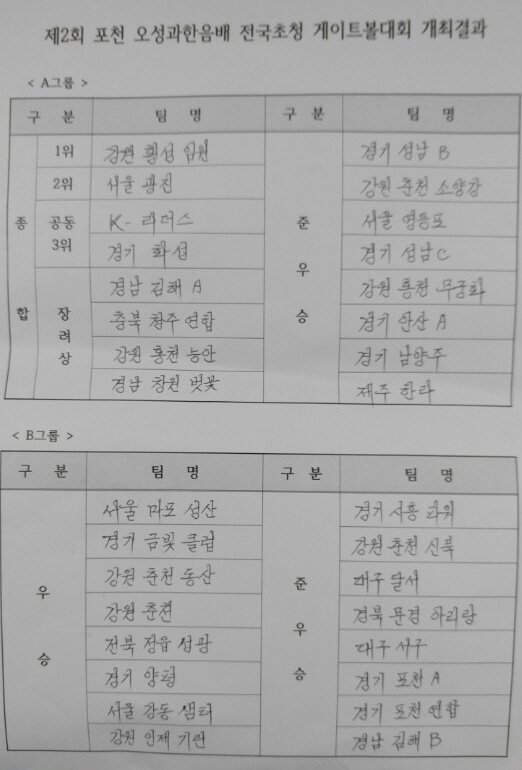 제2회 포천 오성과한음배 전국초청 게이트볼대회 개최결과
< A그룹 >
구 분 팀 명 구 분 팀 명
종합 1위 강원 횡성 임원 준우승 경기 성남 B
2위 서울 광진 강원 춘천 소양강
공동 3위 K- 리더스 서울 영등포
경기 화성 경기 성남 C
장려상 경남 김해 A 강원 홍천 무궁화
충북 청주 연합 경기 안산 A
강원 홍천 능안 경기 남양주
경남 창원 벚꽃 제주 한라
< B그룹 >
구 분 팀 명 구 분 팀 명
우승 서울 마포 성산 준우승 경기 시흥 파워
경기 금빛 클럽 강원 춘천 신북
강원 춘천 동산 대구 달서
강원 춘천 경북 문경 아리랑
전북 정읍 성광 대구 서구
경기 양평 경기 포천 A
서울 강동 샘터 경기 포천 연합
강원 인제 기린 경남 김해 B